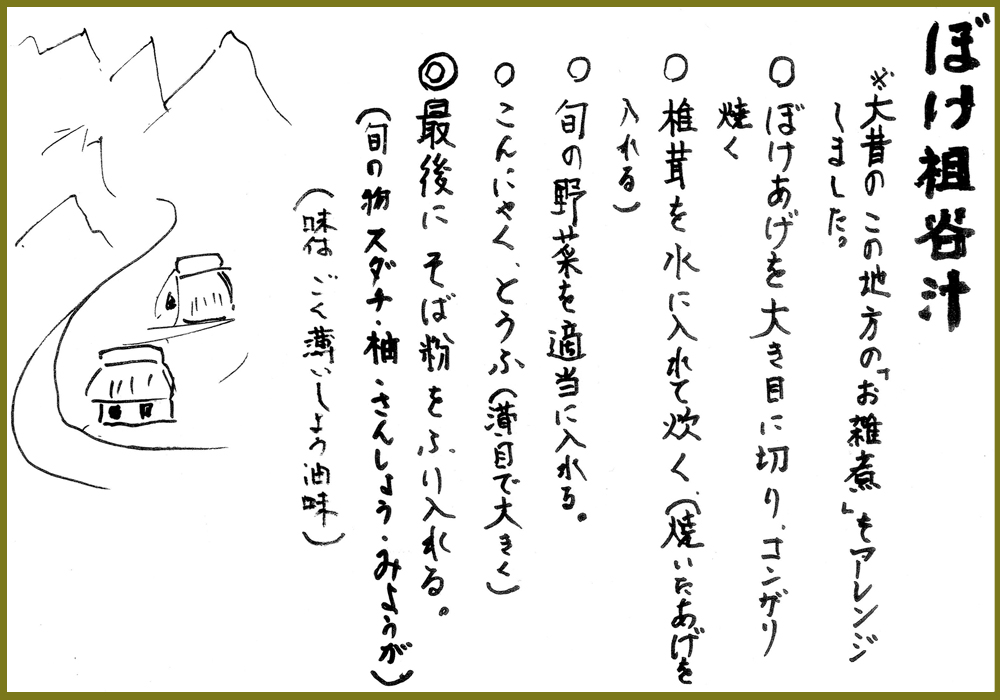 ぼけ祖谷汁
※大昔のこの地方の「お雑煮」をアーレンジ
しました。
○ぼけあげを大き目に切り、コンガリ
焼く
○椎茸を水に入れて炊く、(焼いたあげを
入れる)
○旬の野菜を適当に入れる。
○こんにゃく、とうふ(薄目で大きく)
◎最後にそば粉をふり入れる。
(旬の物スダチ・柚・さんしょう・みょうが)
(味はごく薄いしょう油味)